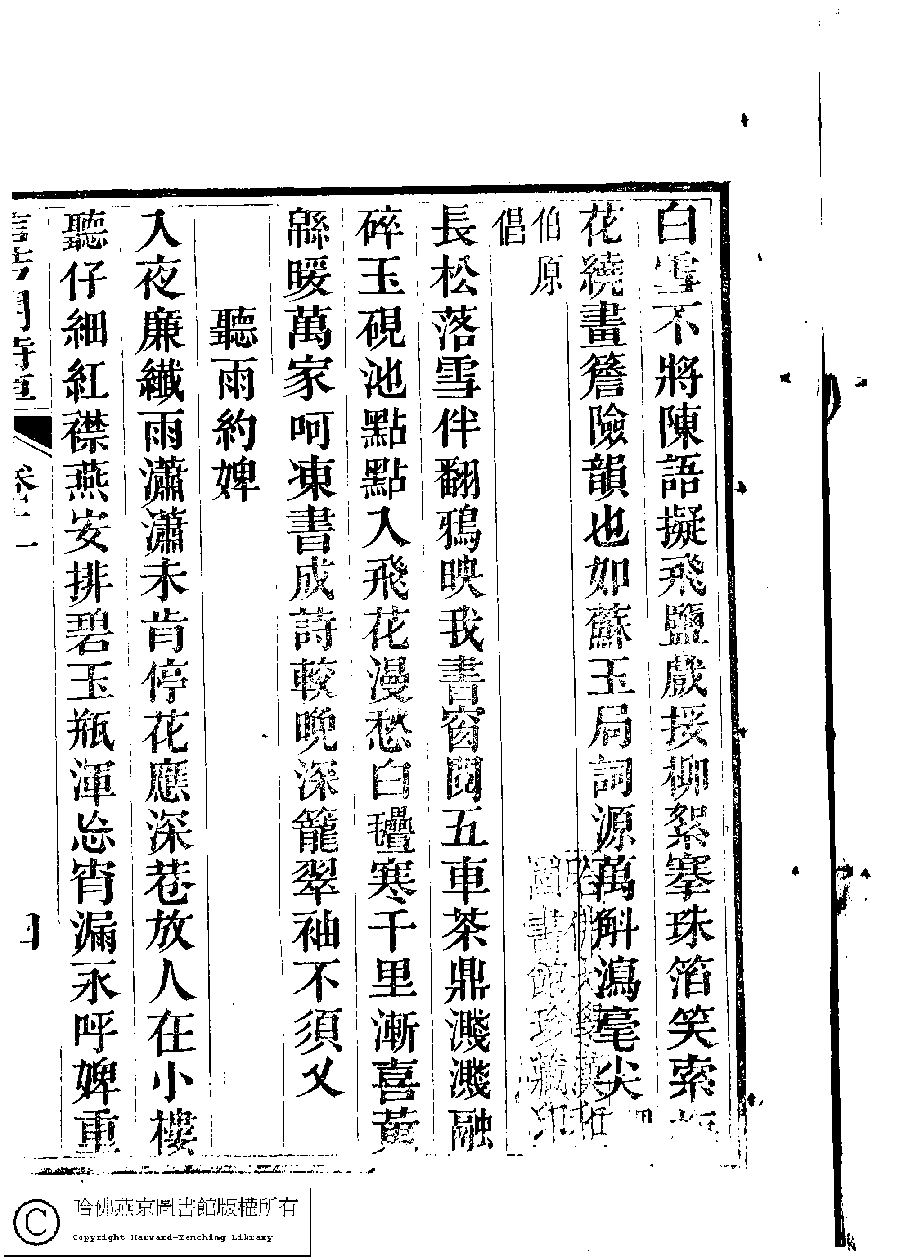 白雪不將陳語擬飛鹽戲挼柳絮搴珠箔笑索梅
花繞畫簷險韻也如蘇玉局詞源萬斛瀉毫尖
伯原
倡
長松落雪伴翻鴉映我書窗閱五車茶鼎濺濺融
碎玉硯池點點入飛花漫愁白氎寒千里漸喜黃
緜暖萬家呵凍書成詩較晚深籠翠袖不須叉
聽雨約婢
入夜廉纖雨瀟瀟未肯停花應深巷放人在小樓
聽仔細紅襟燕安排碧玉瓶渾忘宵漏永呼婢重
卷十一
四
哈佛大學漢和
圖書館珍藏印
哈佛燕京圖書館版權所有
Copyright Harvard-Yenching Library